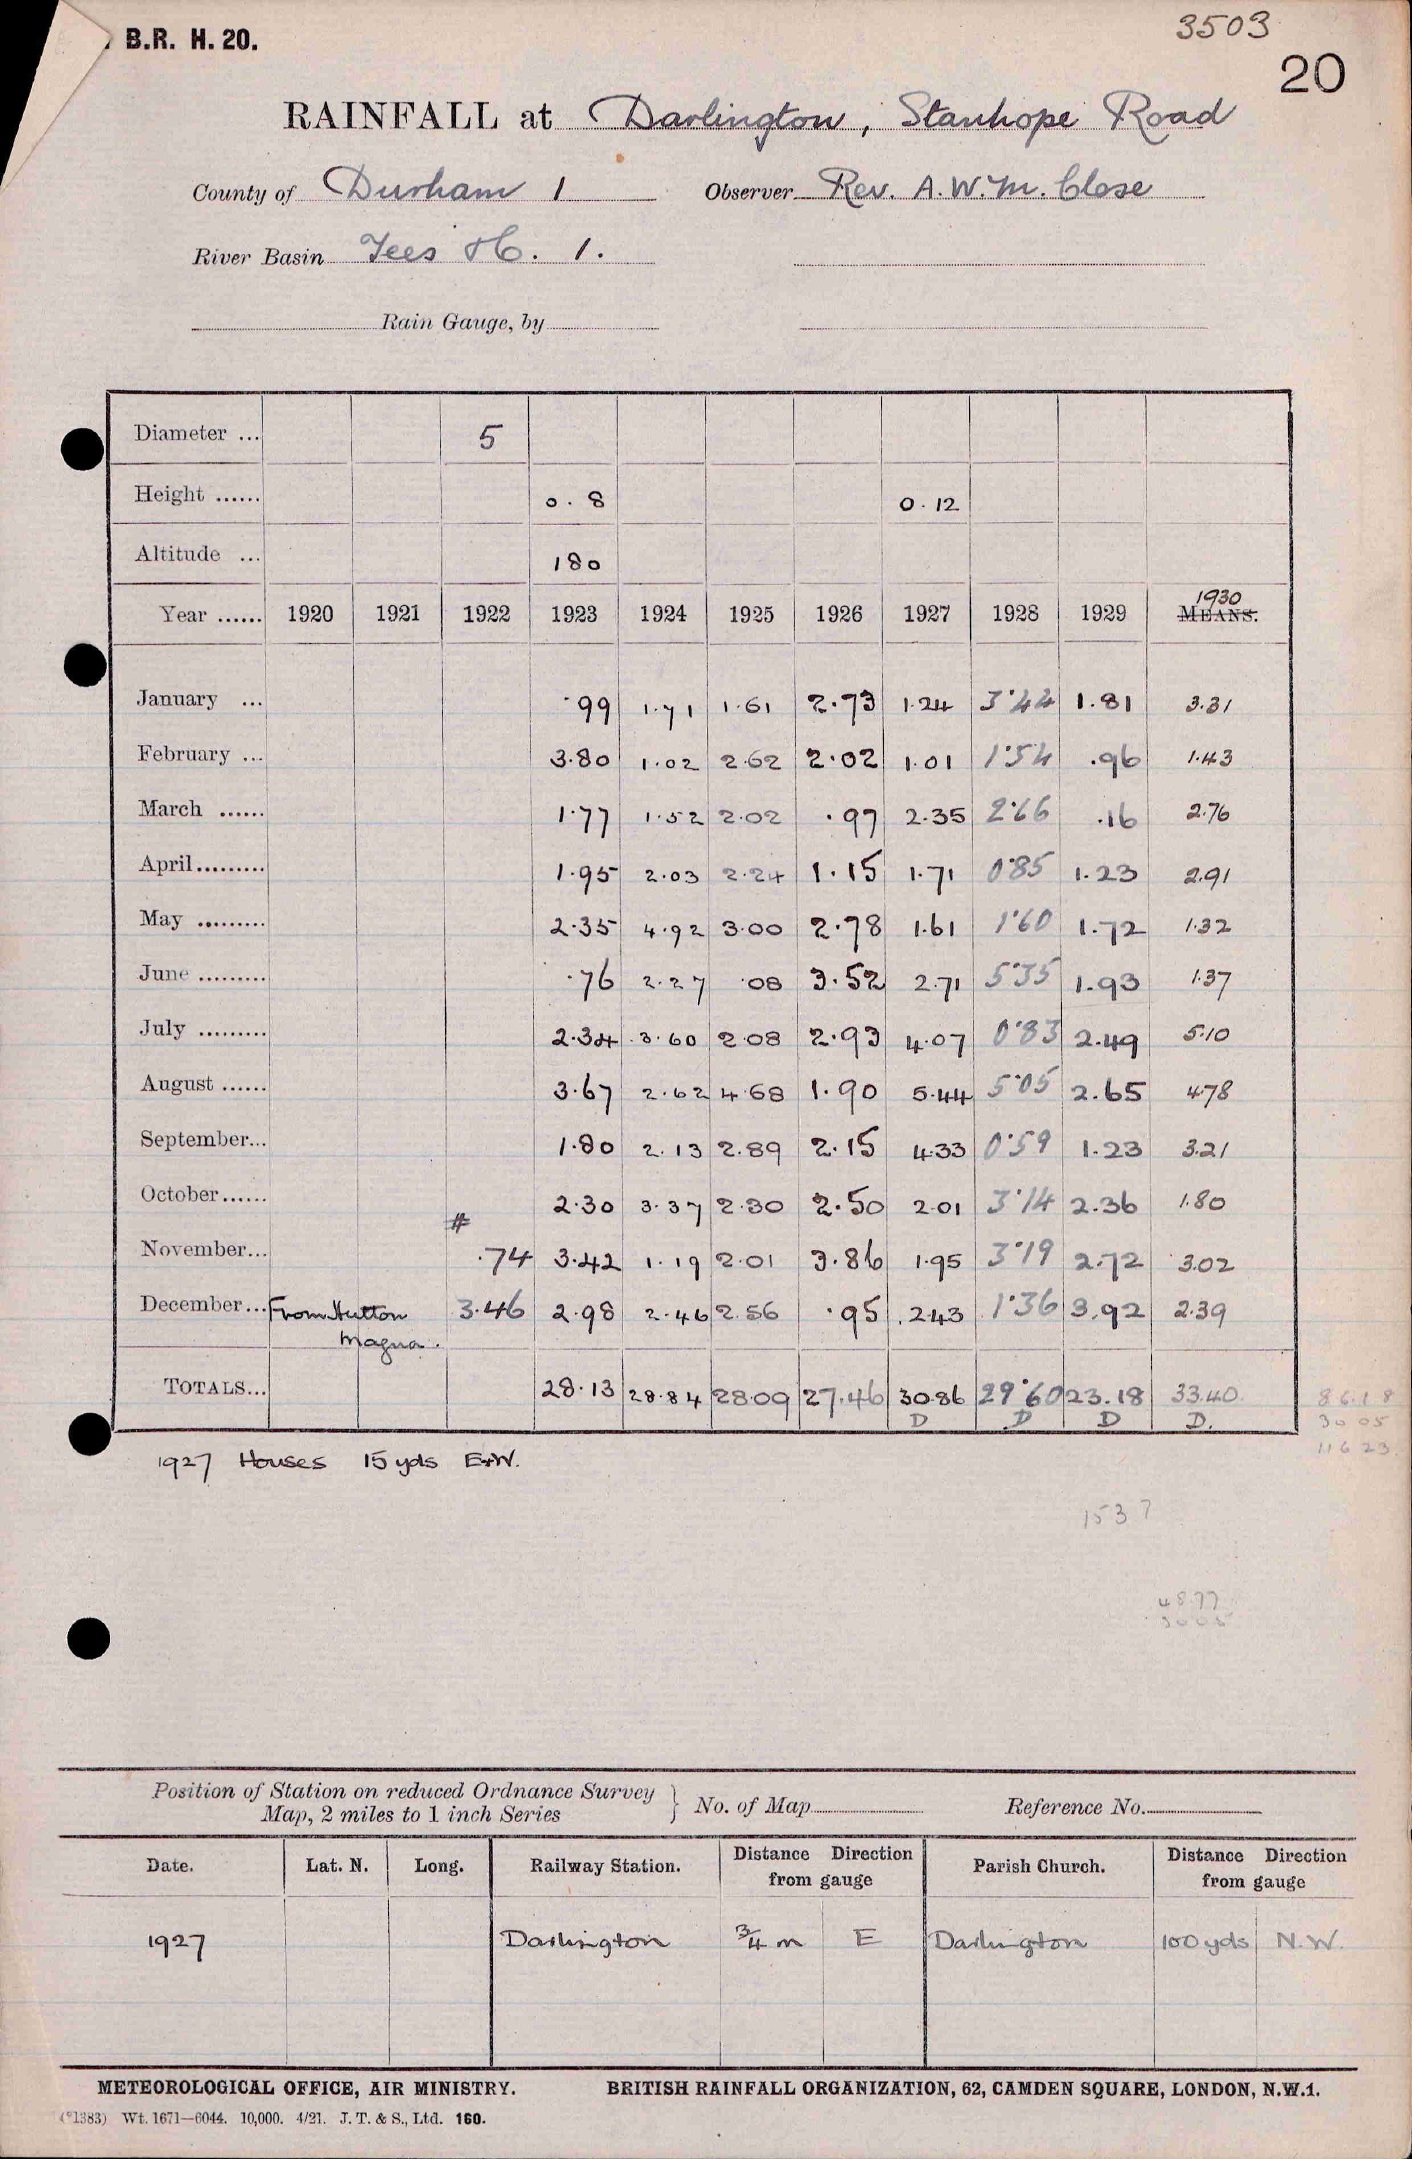 B.R. H. 20.
3503
20
RAINFALL at Darlington, Stanhope Road
County of Durham 1 Observer Rev. A.W.M. Close
River Basin Tees H. 1.
Rain Gauge, by
Diameter ... 5
Height ...... 0.8 0.12
Altitude ... 180
Year ...... 1920 1921 1922 1923 1924 1925 1926 1927 1928 1929 MEANS. 1930
January ... .99 1.71 1.61 2.73 1.24 3.44 1.81 3.31
February ... 3.80 1.02 2.62 2.02 1.01 1.54 .96 1.43
March ...... 1.77 1.52 2.02 .97 2.35 2.66 .16 2.76
April......... 1.95 2.03 2.24 1.15 1.71 0.85 1.23 2.91
May ......... 2.35 4.92 3.00 2.78 1.61 1.60 1.72 1.32
June ......... .76 2.27 .08 3.52 2.71 5.35 1.93 1.37
July ......... 2.34 3.60 2.08 2.93 4.07 0.83 2.49 5.10
August ...... 3.67 2.62 4.68 1.90 5.44 5.05 2.65 4.78
September... 1.80 2.13 2.89 2.15 4.33 0.59 1.23 3.21
October...... 2.30 3.37 2.30 2.50 2.01 3.14 2.36 1.80
November... # .74 3.42 1.19 2.01 3.86 1.95 3.19 2.72 3.02
December... From Hutton Magna. 3.46 2.98 2.46 2.56 .95 2.43 1.36 3.92 2.39
TOTALS... 28.13 28.84 28.09 27.46 30.86 29.60 23.18 33.40
D D D D.
86.18
30 05
116 23
1927 Houses 15 yds E+W.
1537
48.77
3005
Position of Station on reduced Ordnance Survey
Map, 2 miles to 1 inch Series } No. of Map Reference No.
Date. Lat. N. Long. Railway Station. Distance Direction from gauge Parish Church. Distance Direction from gauge
1927 Darlington 3/4 m E Darlington 100 yds N.W.
METEOROLOGICAL OFFICE, AIR MINISTRY. BRITISH RAINFALL ORGANIZATION, 62, CAMDEN SQUARE, LONDON, N.W.1.
Wt. 1671—6044. 10,000. 4/21. J. T. & S., Ltd. 160.